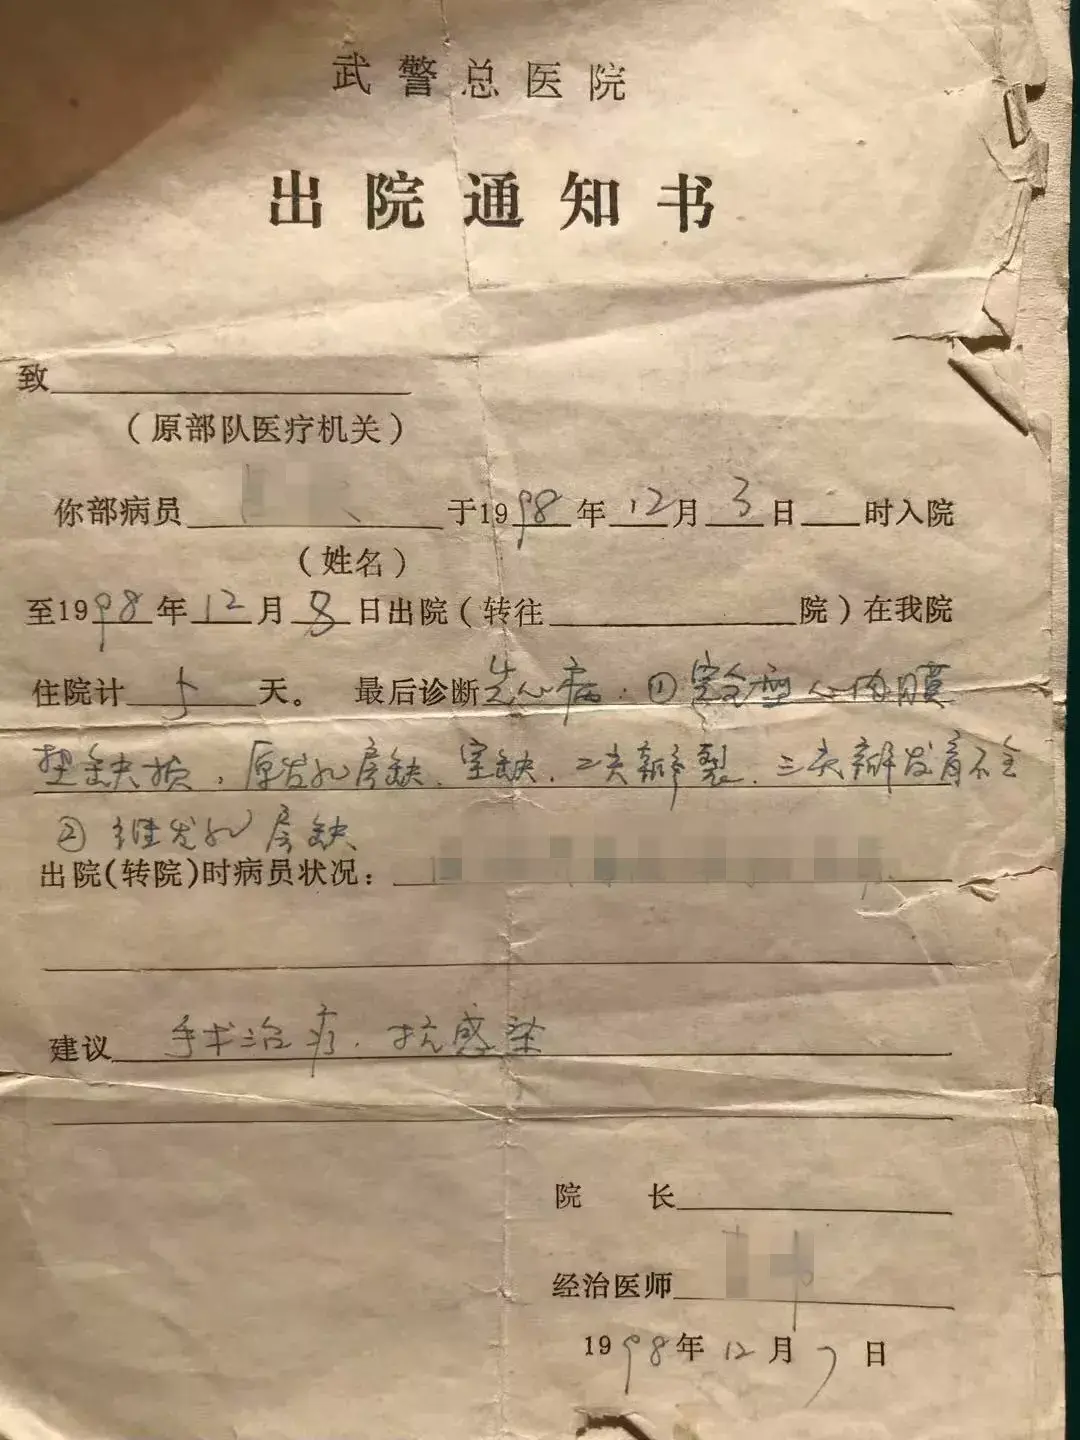 武警总医院
出院通知书
致
（原部队医疗机关）
你部病员 于1998年12月3日 时入院
（姓名）
至1998年12月8日出院（转往 院）在我院
住院计5天。 最后诊断先心病：①完全型心内膜
垫缺损，原发孔房缺、室缺、二尖瓣裂、三尖瓣发育不全
②继发孔房缺
出院(转院)时病员状况：
建议 手术治疗、抗感染
院 长
经治医师
1998年12月7日